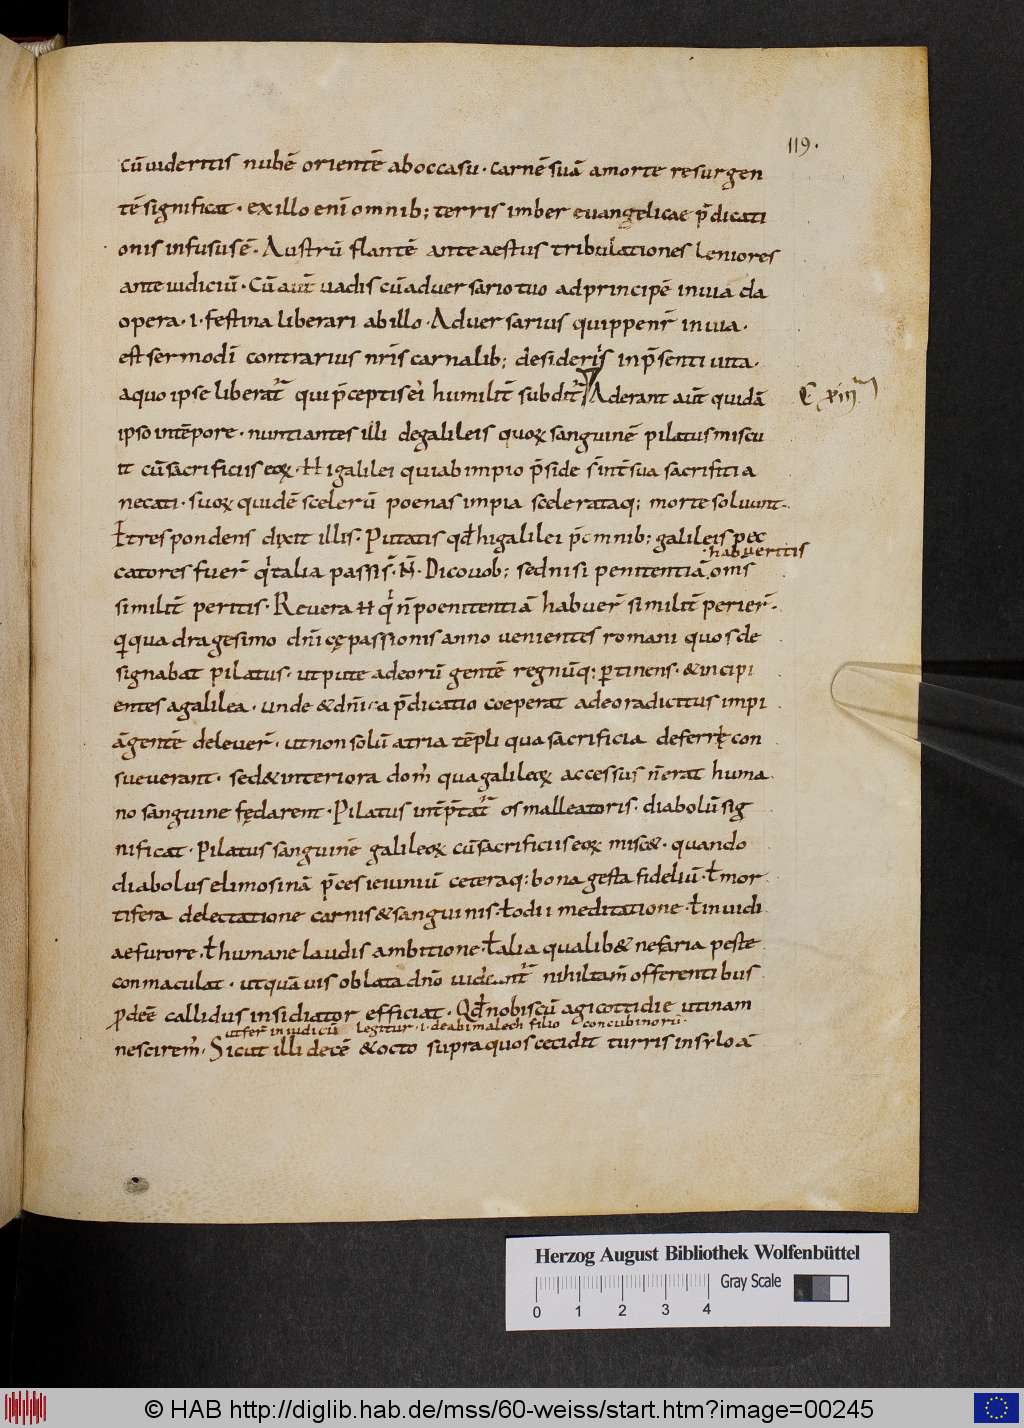 119.
cū uideritis nubē orientē ab occasu · carnē suā a morte resurgen
tē significat · ex illo enī omnib; terris imber euangelicae p̄dicati
onis infusus ē · Austrū flantē ante aestus tribulationes leniores
ante iudiciū · Cū aut̄ uadis cū aduersario tuo ad principē in uia da
opera · i · festina liberari ab illo · Aduersarius quippe nr̄ in uia ·
est sermo dī contrarius nr̄is carnalib; desideriis in p̄senti uita ·
a quo ipse liberat̄ qui p̄ceptis ei humilit̄ subdit̄ Aderant aut̄ quidā
ipso in tēpore · nuntiantes illi de galileis quoꝝ sanguinē pilatus miscu
it cū sacrificiis eoꝝ · Hi galilei qui ab impio p̄side s̄ int̄ sua sacrifitia
necati · suoꝝ quidē scelerū poenas impia scelerataq; morte soluunt ·
Et respondens dixit illis · Putatis qđ hi galilei p̄ omnib; galileis pec
· habueritis
catores fuer̄ q̄ talia passi s̄ · N̄ · Dico uob; sed nisi penitentiā om̄s
similit̄ peritis · Reuera ħ q̄ n̄ poenitentiā habuer̄ similit̄ perier̄ ·
q̣ quadragesimo dn̄icę passionis anno uenientes romani quos de
signabat pilatus · utpute ad eorū gentē regnūq; ꝑtinens · & incipi
entes a galilea · unde & dn̄ica p̄dicatio coeperat adeo radicitus impi
ā gentē deleuer̄ · ut non solū atria tēpli qua sacrificia deferre con
sueuerant · sed & interiora dom̄ qua galileoꝝ accessus n̄ erat huma
no sanguine fędarent · Pilatus int̄p̄tat̄ os malleatoris · diabolū sig
nificat · Pilatus sanguinē galileoꝝ cū sacrificiis eoꝝ misc& · quando
diabolus elimosinā p̄ces ieiuniū ceteraq; bona gesta fideliū · ł mor
tifera delectatione carnis & sanguinis · ł odii meditatione · ł inuidi
ae furore · ł humane laudis ambitione · ł alia qualib& nefaria peste
conmaculat · ut quāuis oblata dn̄o uideant̄ nihil tam̄ offerentibus
ꝓdeē callidus insidiator efficiat · Qđ nobiscū agi cottidie utinam
ut fer̄ in iudiciū legitur · i · de abimalech filio concubinorū ·
nescirem̄ · Sicut illi decē & octo supra quos cecidit turris in syloā
C xiii
Herzog August Bibliothek Wolfenbüttel
Gray Scale
0 1 2 3 4
© HAB http://diglib.hab.de/mss/60-weiss/start.htm?image=00245